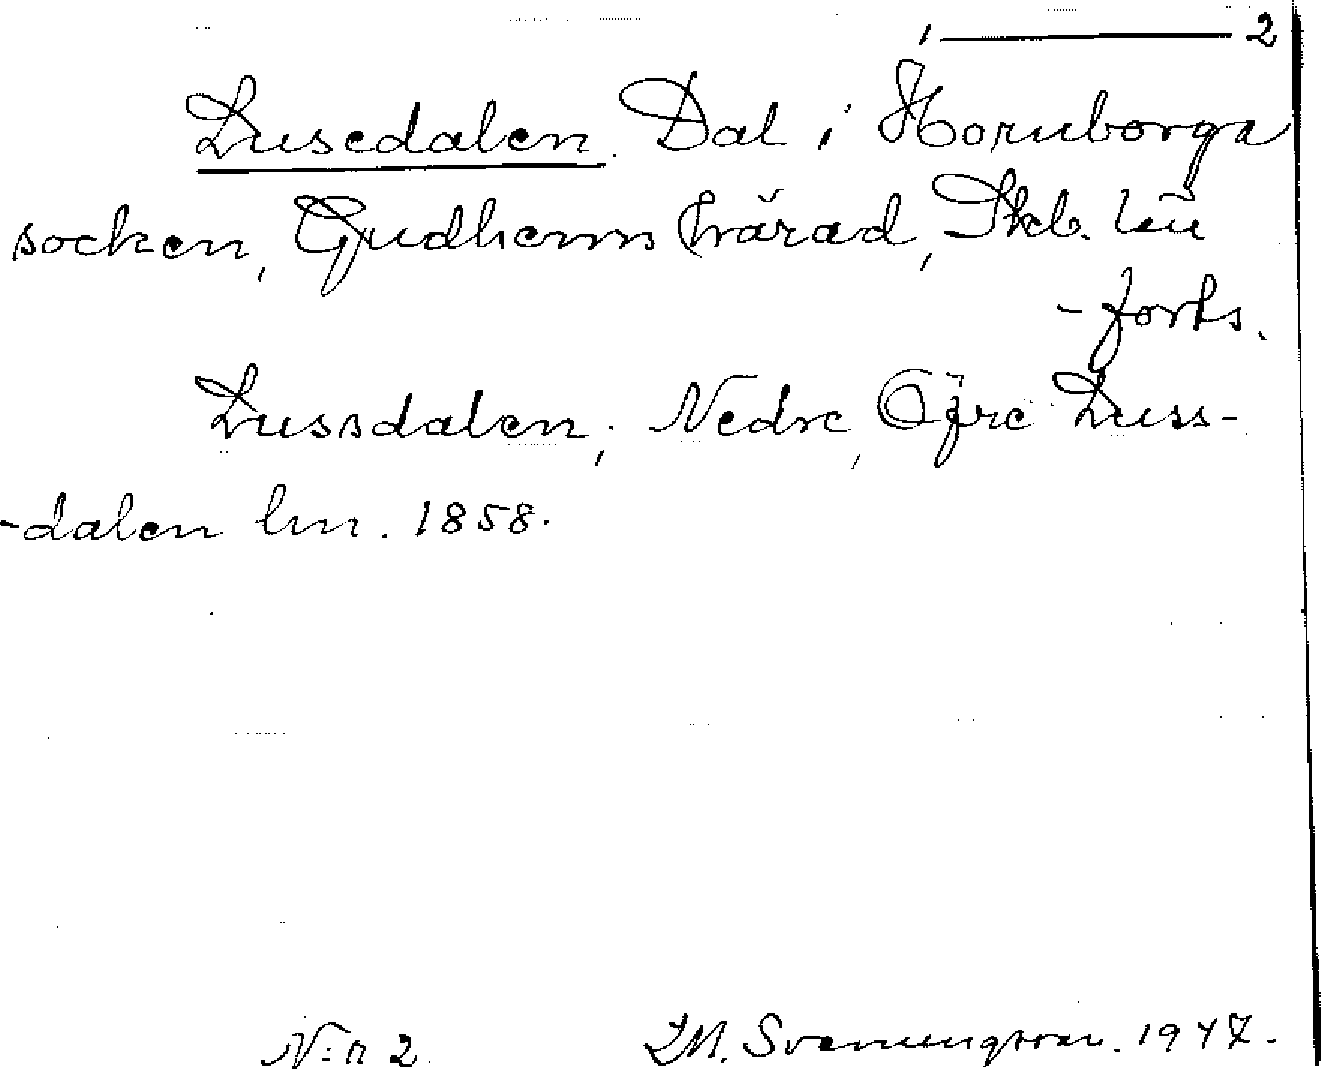 1 — 2
Lusedalen. Dal i Hornborga
socken, Gudhems härad, Skb. län
- forts.
Lussdalen; Nedre, Öfre Luss-
-dalen lm. 1858.
N:r 2 M. Svenungsson. 1947.